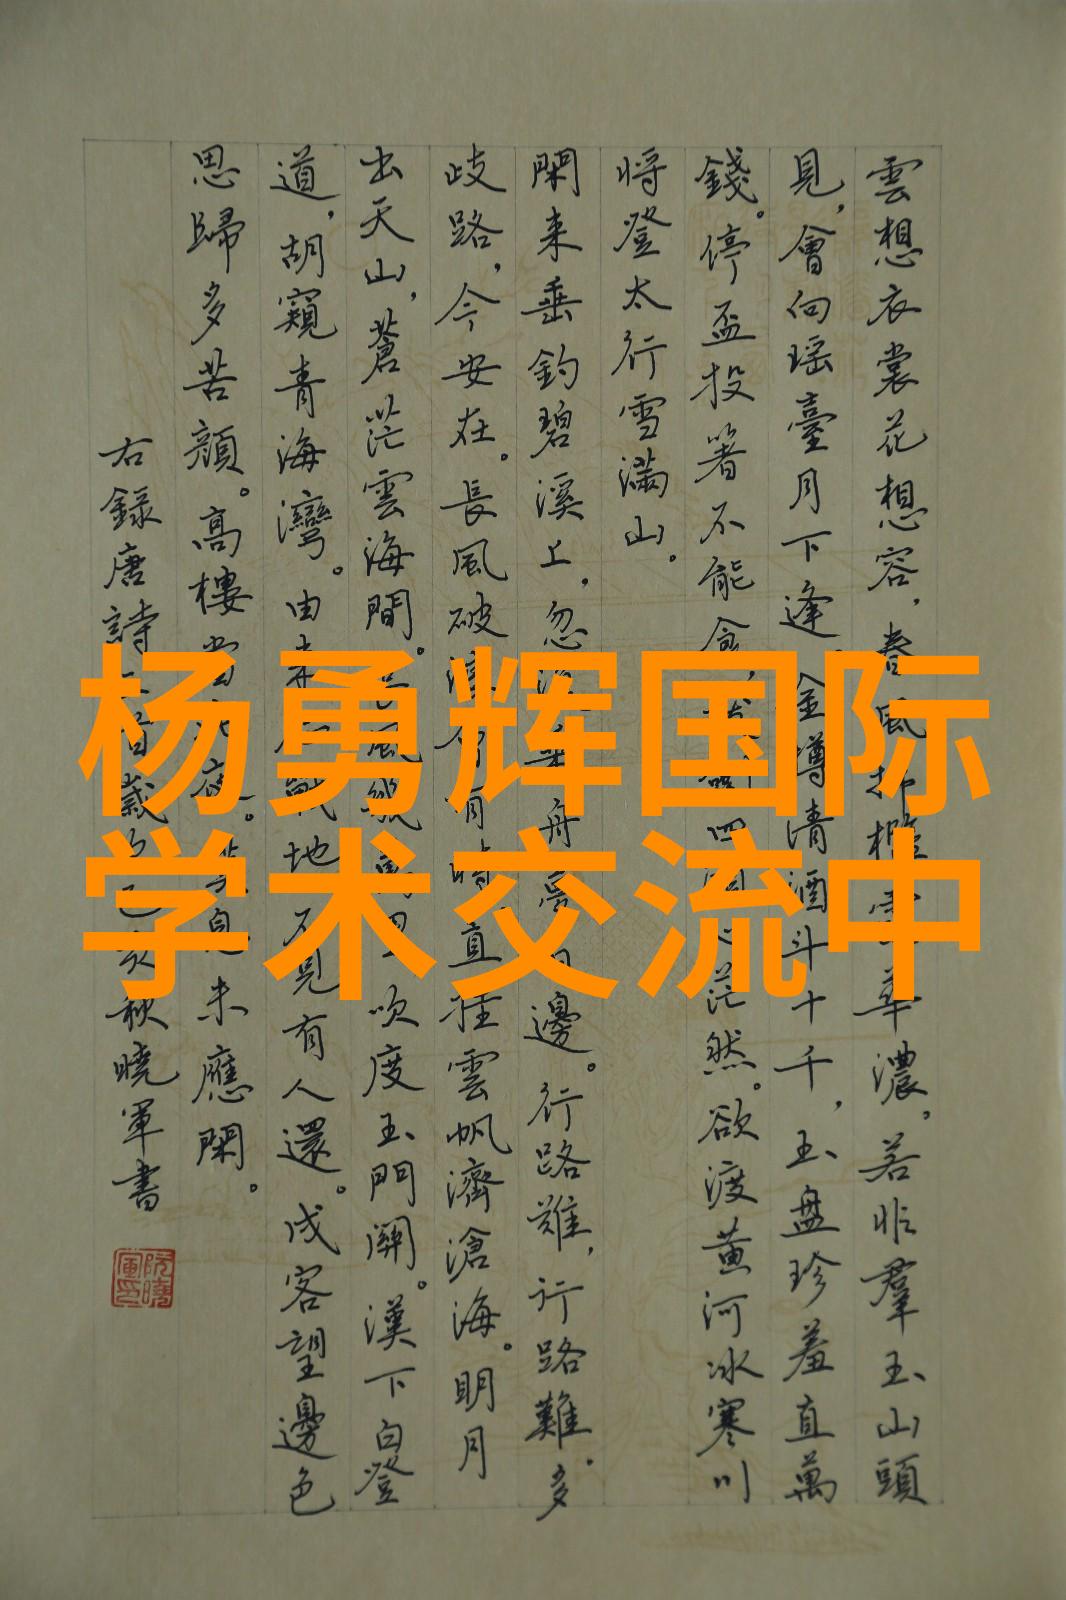 杨勇辉国际
学术交流中
雲想衣裳花想容，春風拂檻華濃，若非羣玉山頭
見，會向瑶臺月下逢。金樽清酒斗十千，玉盤珍羞直萬
錢。停盃投箸不能食，四茫然。欲渡黄河冰寒川
将登太行雪滿山。
閑来垂釣碧溪上，忽舟夢日邊。行路難，行路難。多
歧路，今安在。長風破浪有時直挂雲帆濟滄海。明月
出天山，蒼茫雲海間。風吹度玉門關。漢下白登
道，胡窺青海灣。由来戰地不見有人還。戍客望邊色
思歸多苦顔。高樓當夜。息未應閑。
右録唐詩首歲亥秋曉軍書
阮曉軍印